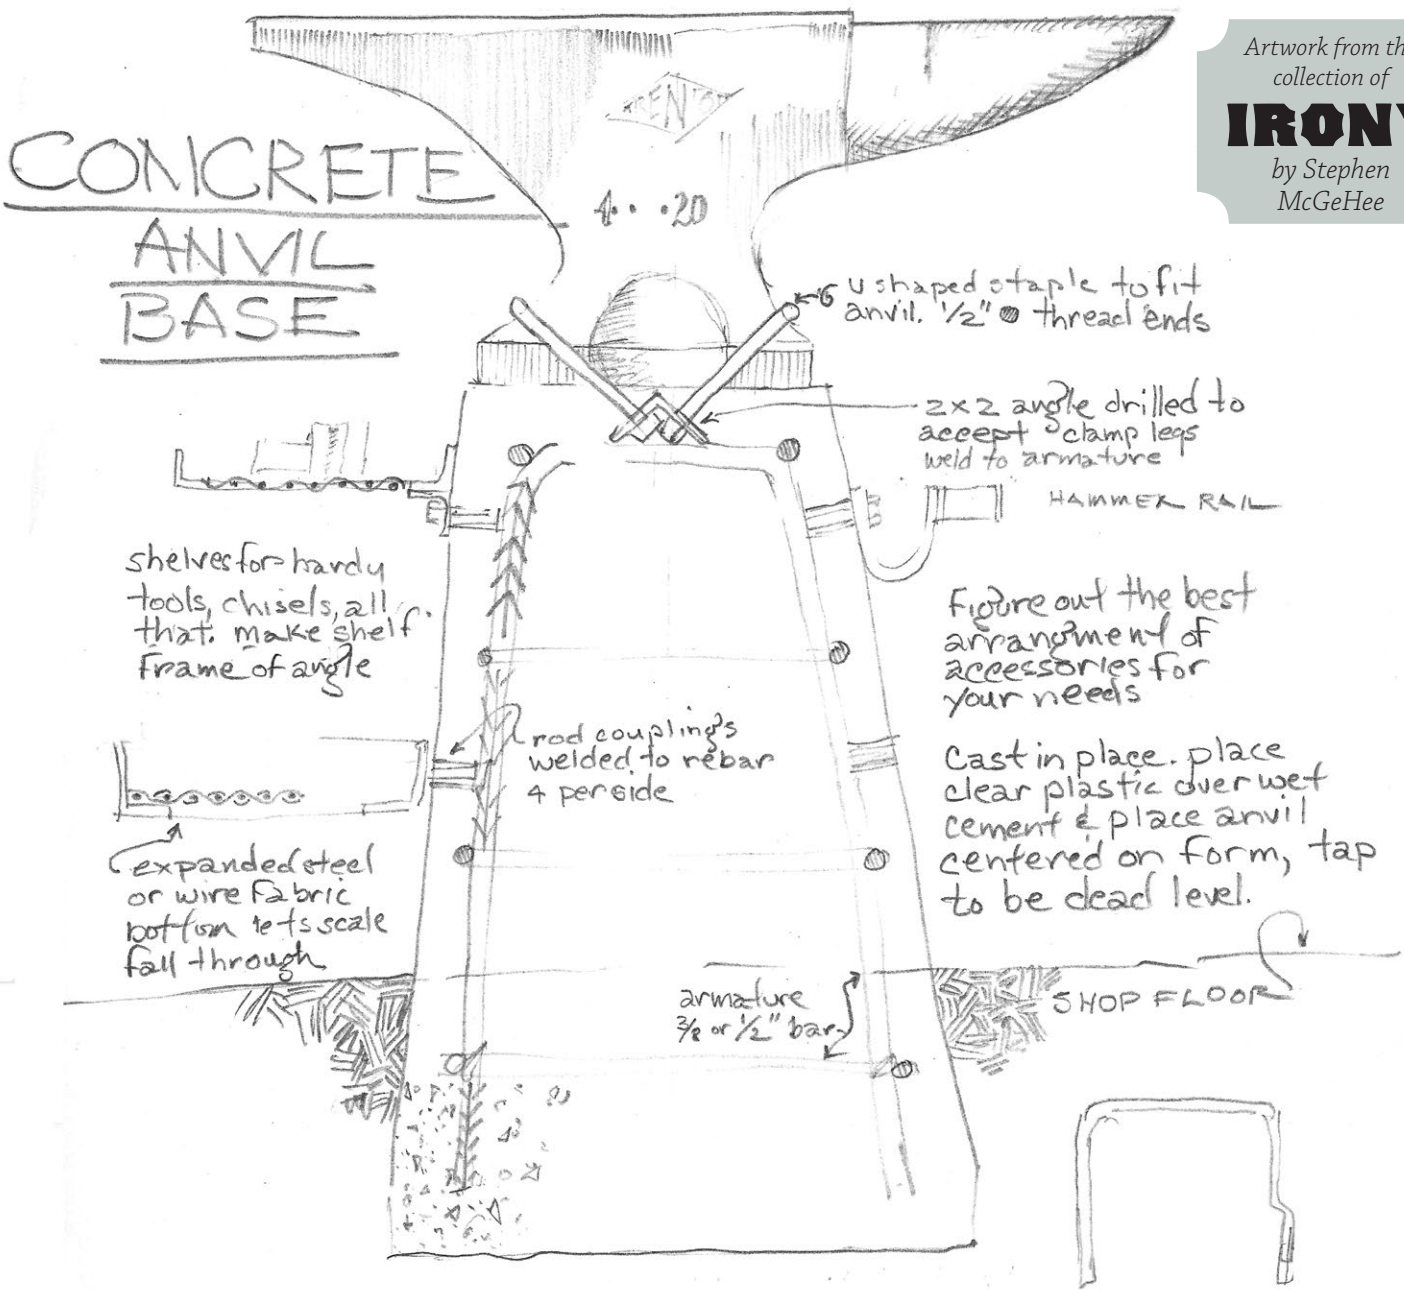 CONCRETE
ANVIL
BASE
Artwork from th
collection of
IRONY
by Stephen
McGeHee
TRENTON
4 · · · 20
U shaped staple to fit
anvil. 1/2" thread ends
2x2 angle drilled to
accept clamp legs
weld to armature
HAMMER RAIL
shelves for hardy
tools, chisels, all
that. make shelf
frame of angle
Figure out the best
arrangment of
accessories for
your needs
rod couplings
welded to rebar
4 per side
Cast in place. place
clear plastic over wet
cement & place anvil
centered on form, tap
to be dead level.
expanded steel
or wire fabric
bottom lets scale
fall through
armature
3/8 or 1/2" bar
SHOP FLOOR